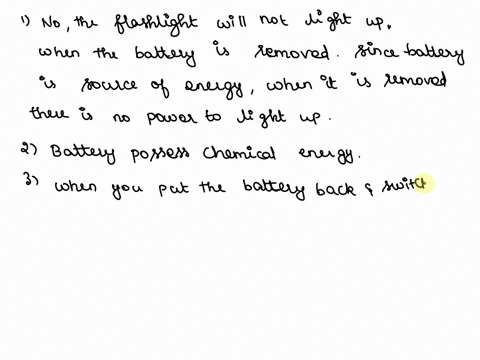 1) No, the flashlight will not light up,
when the battery is removed. since battery
is source of energy, when it is removed
there is no power to light up.
2) Battery possess chemical energy.
3) when you put the battery back & switch